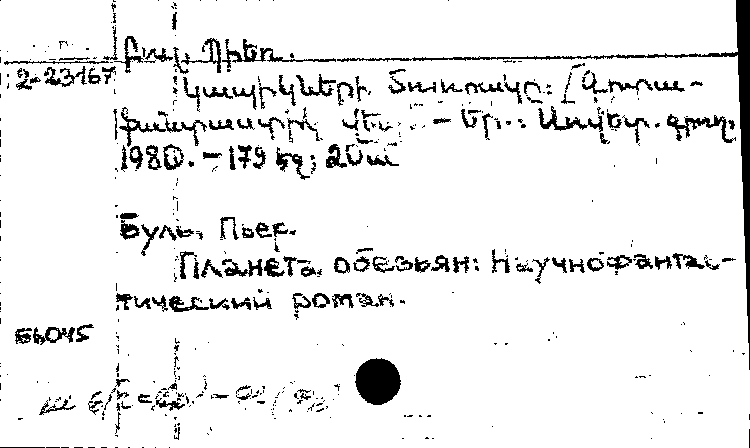 Բուլ, Պիեռ.
2-23167
Կապիկների մոլորակը: [Գիտա-
ֆանտաստիկ վեպ]. - Եր.: Սովետ. գրող,
1980. - 179 էջ; 20սմ
Буль, Пьер.
Планета обезьян: Научнофантас-
тический роман.
86045